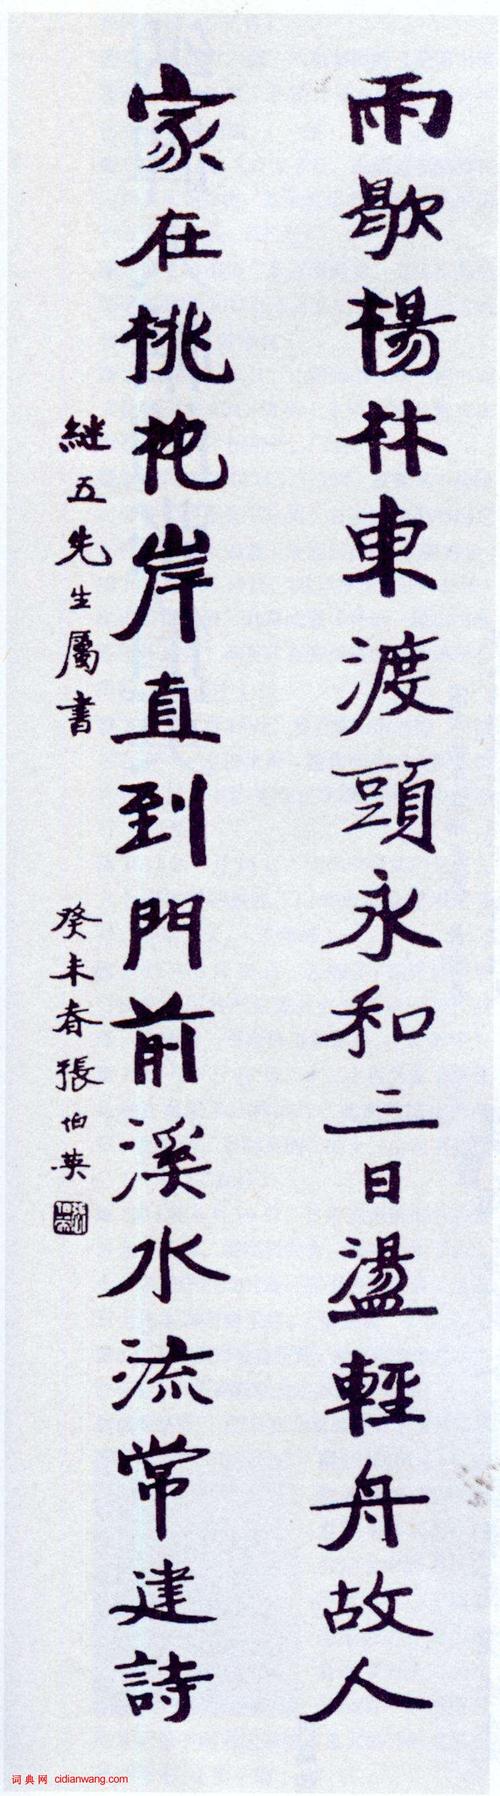 雨歇楊林東渡頭永和三日盪輕舟故人
家在桃杹岸直到門前溪水流常建詩
継五先生屬書
癸未春張伯英
词典网 cidianwang.com